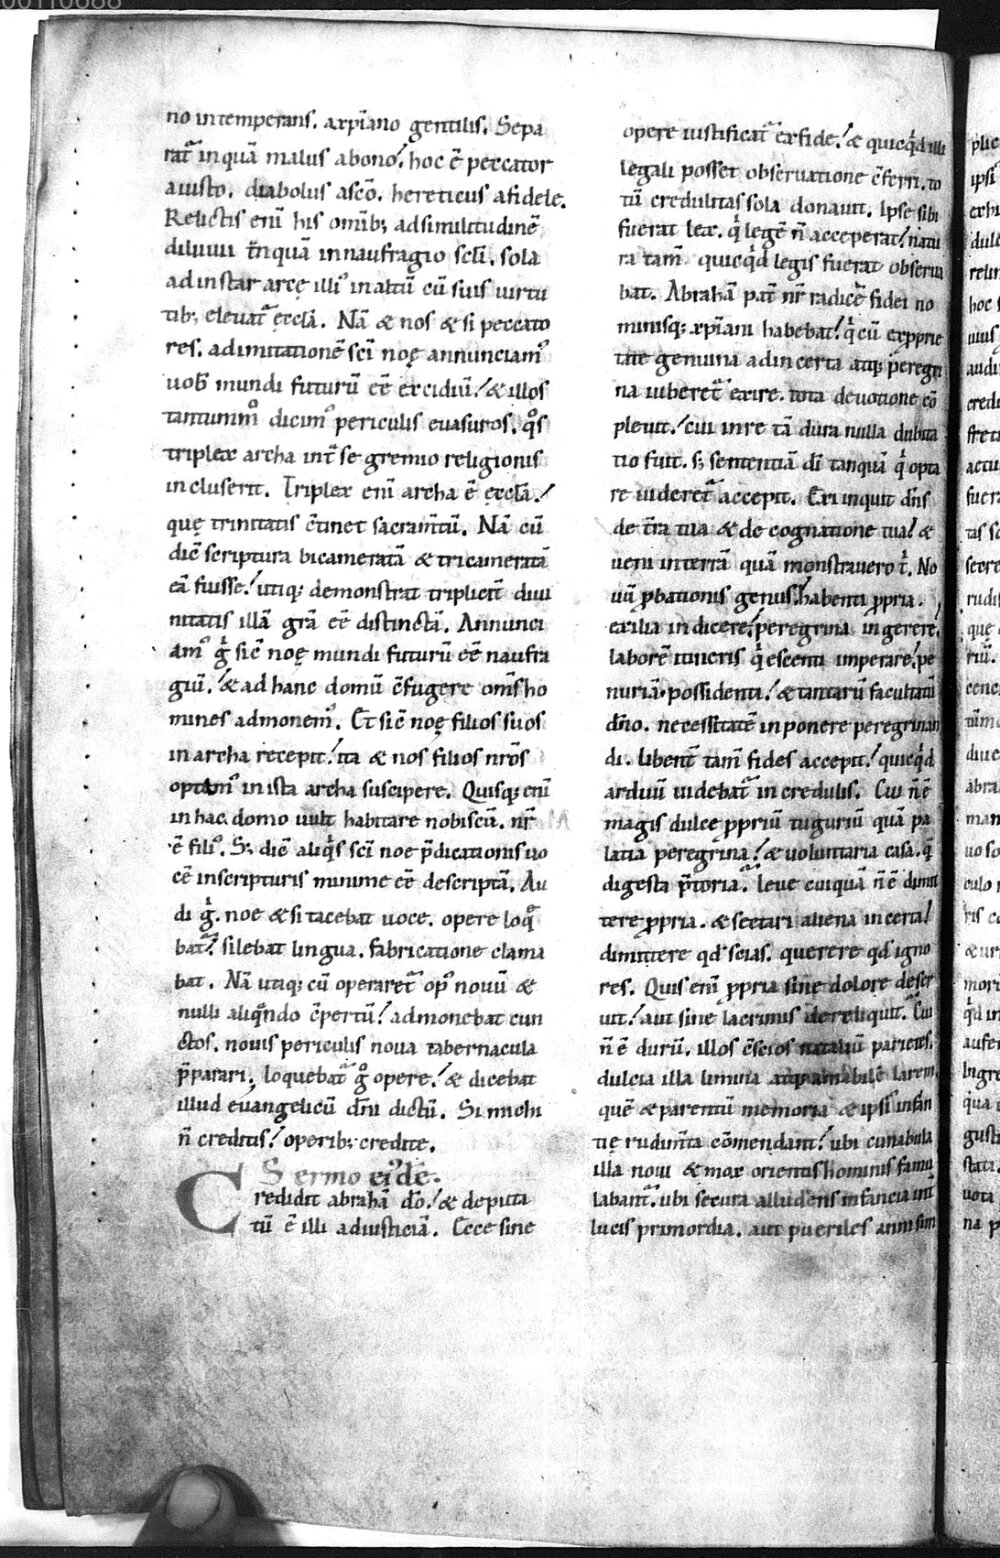 00110688
no intemperans. a xp̄iano gentilis. Sepa
rat᷑ inquā malus a bono. hoc ē peccator
a iusto. diabolus a sc̄o. hereticus a fidele.
Relictis enī his om̄ib; ad similitudinē
diluuii tn̄quā in naufragio sc̄li. sola
ad instar arcę illiꝰ in altū cū suis uirtu
tib; eleuat᷑ ęccl̄a. Nā & nos & si peccato
res. ad imitationē sc̄i noę annunciamꝰ
uob̄ mundi futurū eē excidiū. & illos
tantummͦ dicimꝰ periculis euasuros. qͦs
triplex archa int̄ se gremio religionis
incluserit. Triplex enī archa ē ęccl̄a.
quę trinitatis c̄tinet sacram̄tū. Nā cū
dic̄ scriptura bicameratā & tricameratā
eā fuisse. utiq; demonstrat triplicit̄ diui
nitatis illā gr̄a eē distinctā. Annunci
amꝰ gͥ sic̄ noę mundi futurū eē naufra
giū. & ad hanc domū c̄fugere om̄s ho
mines admonemꝰ. Et sic̄ noę filios suos
in archa recepit. ita & nos filios nr̄os
optamꝰ in ista archa suscipere. Quisq; enī
in hac domo uult habitare nobiscū. nr̄
ē filiꝰ. S; dic̄ aliqͥs sc̄i noe p̄dicationis uo
cē in scripturis minime eē descriptā. Au
di gͥ. noe & si tacebat uoce. opere loqͣ
bat᷑. silebat lingua. fabricatione clama
bat. Nā utiq; cū operaret᷑ opꝰ nouū &
nulli aliqͣndo c̄pertū. admonebat cun
ctos. nouis periculis noua tabernacula
p̄parari. loquebat᷑ gͦ opere. & dicebat
illud euangelicū dn̄i dictū. Si michi
n̄ creditis. operib; credite.
Sermo eiꝰdē.
Credidit abrahā dō. & deputa
tū ē illi ad iusticiā. Ecce sine
opere iustificat᷑ ex fide. & quicqͥd illi
legali posset obseruatione c̄ferri. to
tū credulitas sola donauit. Ipse sibi
fuerat lex. qͥ legē n̄ acceperat. natu
ra tam̄ quicqͥd legis fuerat obserua
bat. Abrahā pat̄ nr̄ radicē fidei no
minisq; xp̄iani habebat. qͥ cū ex pprie
tate genuina ad incerta atq; peregri
na iuberet᷑ exire. tota deuotione cō
pleuit. cui in re tā dura nulla dubita
tio fuit. s; sententiā dī tanquā qͥ opta
re uideret᷑ accepit. Exi inquit dn̄s
de t̄ra tua & de cognatione tua. &
ueni in terrā quā monstrauero tͥ. No
uū ꝓbationis genus. habenti ꝓpria.
exilia indicere. peregrina ingerere.
laborē itineris qͥescenti imperare. pe
nuriā possidenti. & tantarū facultatū
dn̄o. necessitatē inponere peregrinan
di. libent̄ tam̄ fides accepit. quicqͥd
arduū uidebat᷑ incredulis. Cui n̄ ē
magis dulce ꝓpriū tuguriū quā pa
latia peregrina. & uoluntaria casa. qͣ
digesta p̄toria. Leue cuiquā n̄ ē dimit
tere ꝓpria. & sectari aliena incerta.
dimittere qd̄ scias. querere qd̄ igno
res. Quis enī ꝓpria sine dolore deser
uit. aut sine lacrimis dereliquit. Cui
n̄ ē durū. illos c̄scios nataliū parietes.
dulcia illa limina atq; amabilē larem.
quē & parentū memoria & ipsi infan
tię rudim̄ta cōmendant. ubi cunabula
illa noui & mox orientis hominis famu
labant᷑. ubi secura alludens infancia int̄
lucis primordia. aut pueriles anni sim